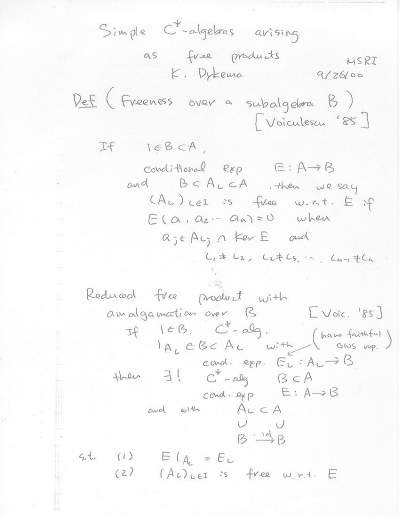 Simple C*-algebras arising
as free products
K. Dykema MSRI
9/26/00
Def (Freeness over a subalgebra B)
[Voiculescu '85]
If 1∈B⊂A,
conditional exp E: A→B
and B⊂A_ι⊂A, then we say
(A_ι)_{ι∈I} is free w.r.t. E if
E(a_1 a_2 ... a_n) = 0 when
a_j ∈ A_{ι_j} ∩ ker E and
ι_1≠ι_2, ι_2≠ι_3, ... ι_{n-1}≠ι_n
Reduced free product with
amalgamation over B [Voic. '85]
If 1∈B, C*-alg. (have faithful
1_{A_ι}∈B⊂A_ι with GNS rep.)
cond. exp. E_ι: A_ι→B
then ∃! C*-alg B⊂A
cond. exp E: A→B
and with A_ι⊂A
∪ ∪
B id→ B
s.t. (1) E|_{A_ι} = E_ι
(2) (A_ι)_{ι∈I} is free w.r.t. E